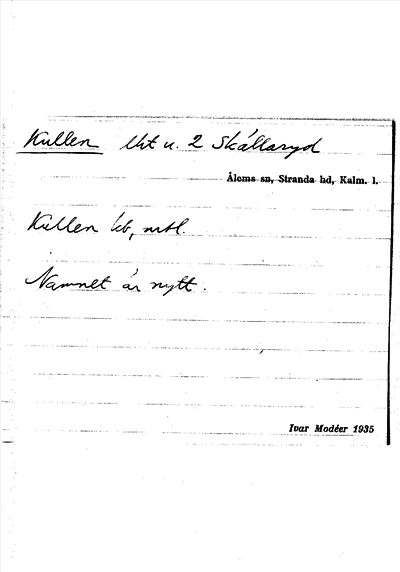 Kullen lht u. 2 Skällaryd
Ålems sn, Stranda hd, Kalm. l.
Kullen kb, mtl.
Namnet är nytt.
Ivar Modéer 1935